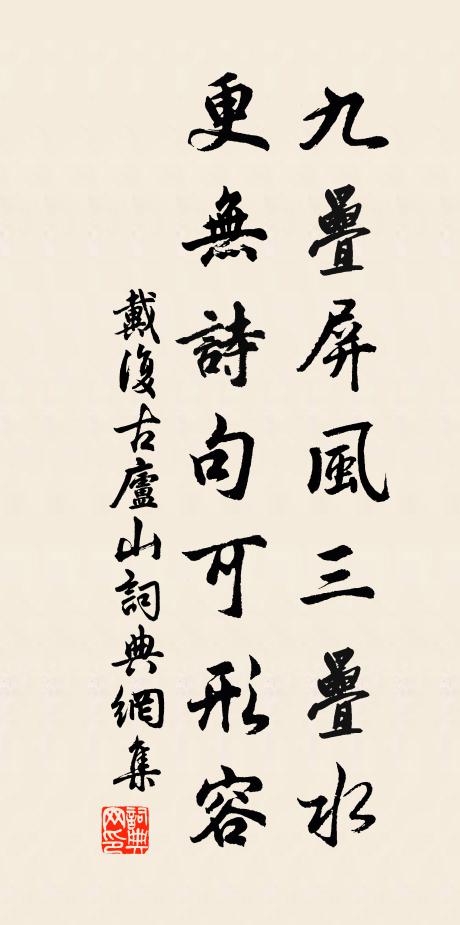 九疊屏風三疊水
更無詩句可形容
戴復古廬山詞典網集
詞典网印